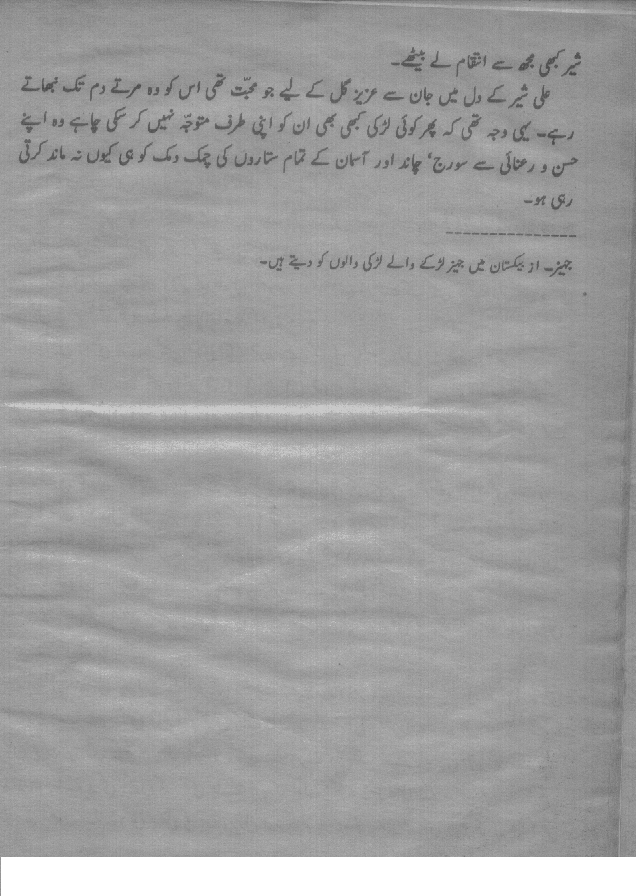 شیر کبھی مجھ سے انتقام لے بیٹھے۔
علی شیر کے دل میں جان سے عزیز گل کے لیے جو محبّت تھی اس کو وہ مرتے دم تک نبھاتے
رہے۔ یہی وجہ تھی کہ پھر کوئی لڑکی کبھی بھی ان کو اپنی طرف متوجّہ نہیں کر سکی چاہے وہ اپنے
حسن و رعنائی سے سورج، چاند اور آسمان کے تمام ستاروں کی چمک دمک کو ہی کیوں نہ ماند کرتی
رہی ہو۔
---------------
جہیز۔ ازبیکستان میں جہیز لڑکے والے لڑکی والوں کو دیتے ہیں۔